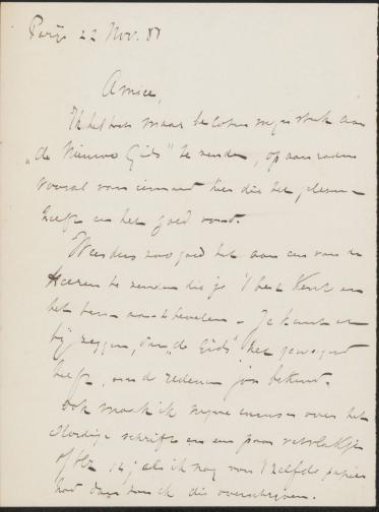 Parijs 22 Nov. 88
Amice,
Ik heb maar besloten mijn stuk aan
„de Nieuwe Gids” te zenden, op aanraden
vooral van iemand hier die het gelezen
heeft en het goed vond.
Wees dus zoo goed het aan een van de
Heeren te zenden die je 't best kent en
het hem aan te bevelen. Je kunt er
bij zeggen, dat „de Gids” het geweigerd
heeft, om de redenen jou bekend.
Ook maak ik mijne excuses over het
slordige schrift en een paar
blz. 14; als ik nog van 't zelfde papier
had dan zou ik die overschrijven.